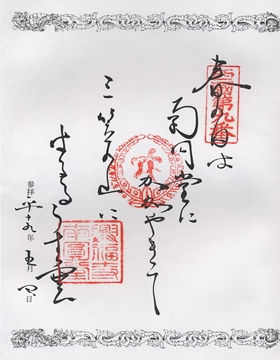 西國第九番
春の日は
南円堂に
かゞやきて
三笠の山に
はるるうす雲
参拝 平十九年 五月 四日